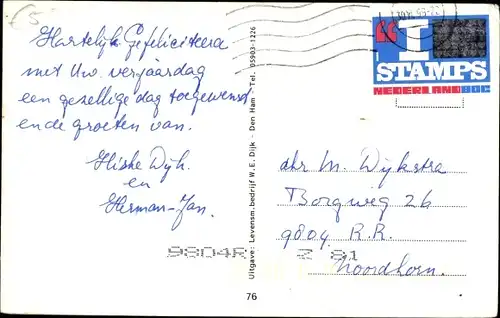 £5
Hartelijk Gefeliciteerd
met Uw verjaardag
een gezellige dag toegewenst
en de groeten van.
Hiske Dijk.
en
Herman-Jan.
9804R Z 81
Uitgave: Levensm. bedrijf W. E. Dijk - Den Ham - Tel. 05903-1226
76
“I
STAMPS
NEDERLAND80C
dhr M. Dijkstra
Borgweg 26
9804 R.R.
Noordhorn.